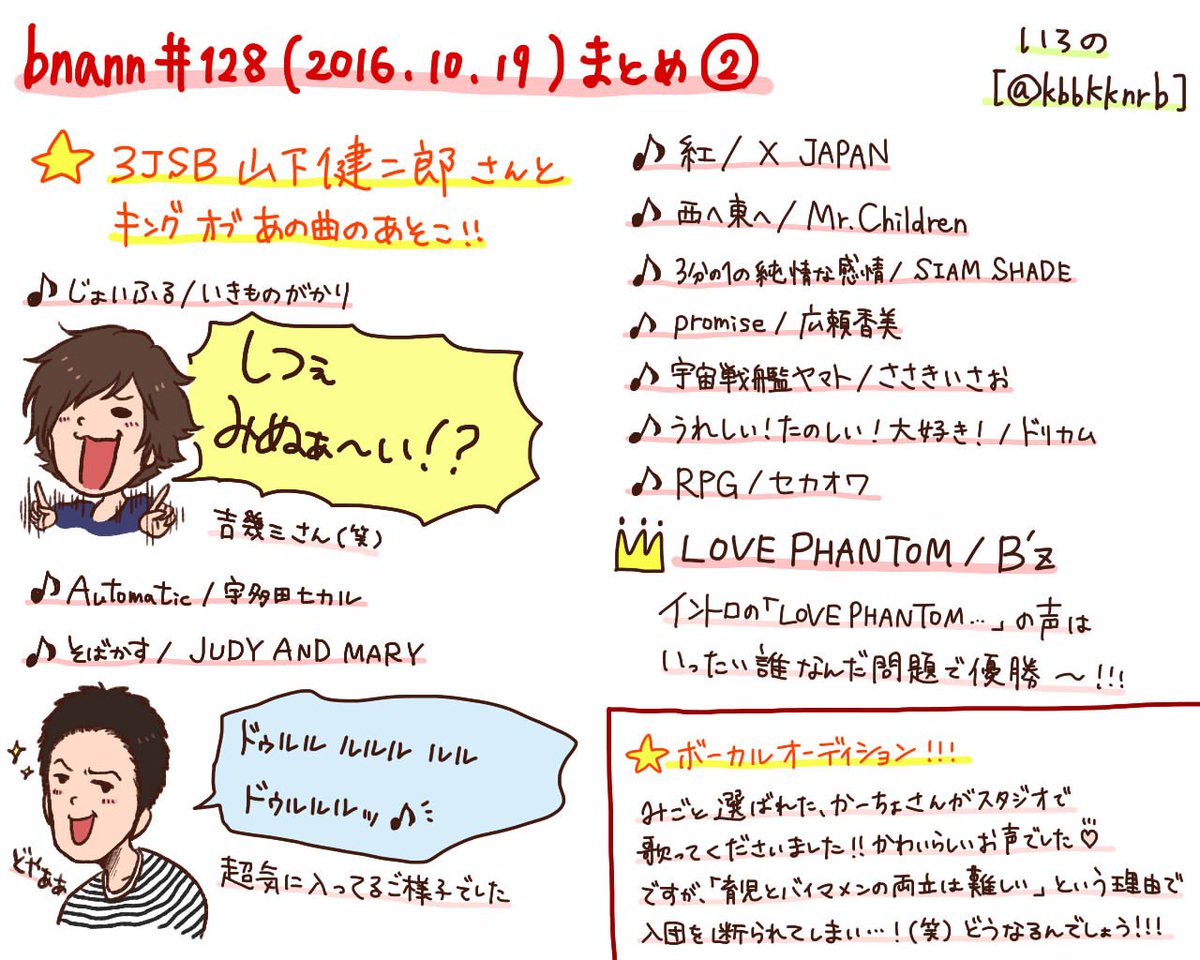 bnann#128(2016.10.19)まとめ②
いろの
[@kbbkknrb]
3JSB 山下健二郎さんと
キングオブあの曲のあそこ!!
♪じょいふる/いきものがかり
しつぇ
みぬぁ〜い!?
吉幾三さん(笑)
♪Automatic/宇多田ヒカル
♪そばかす/JUDY AND MARY
ドゥルルルルルルル
ドゥルルルッ♪
どやぁぁ
超気に入ってるご様子でした
♪紅/X JAPAN
♪西へ東へ/Mr.Children
♪3分の1の純情な感情/SIAM SHADE
♪promise/広瀬香美
♪宇宙戦艦ヤマト/ささきいさお
♪うれしい!たのしい!大好き!/ドリカム
♪RPG/セカオワ
LOVE PHANTOM/B'z
イントロの「LOVE PHANTOM…」の声は
いったい誰なんだ問題で優勝〜!!!
ボーカルオーディション!!!
みごと選ばれた、かーちょさんがスタジオで
歌ってくださいました!!かわいらしいお声でした♡
ですが、「育児とバイマメンの両立は難しい」という理由で
入団を断られてしまい…!(笑)どうなるんでしょう!!!